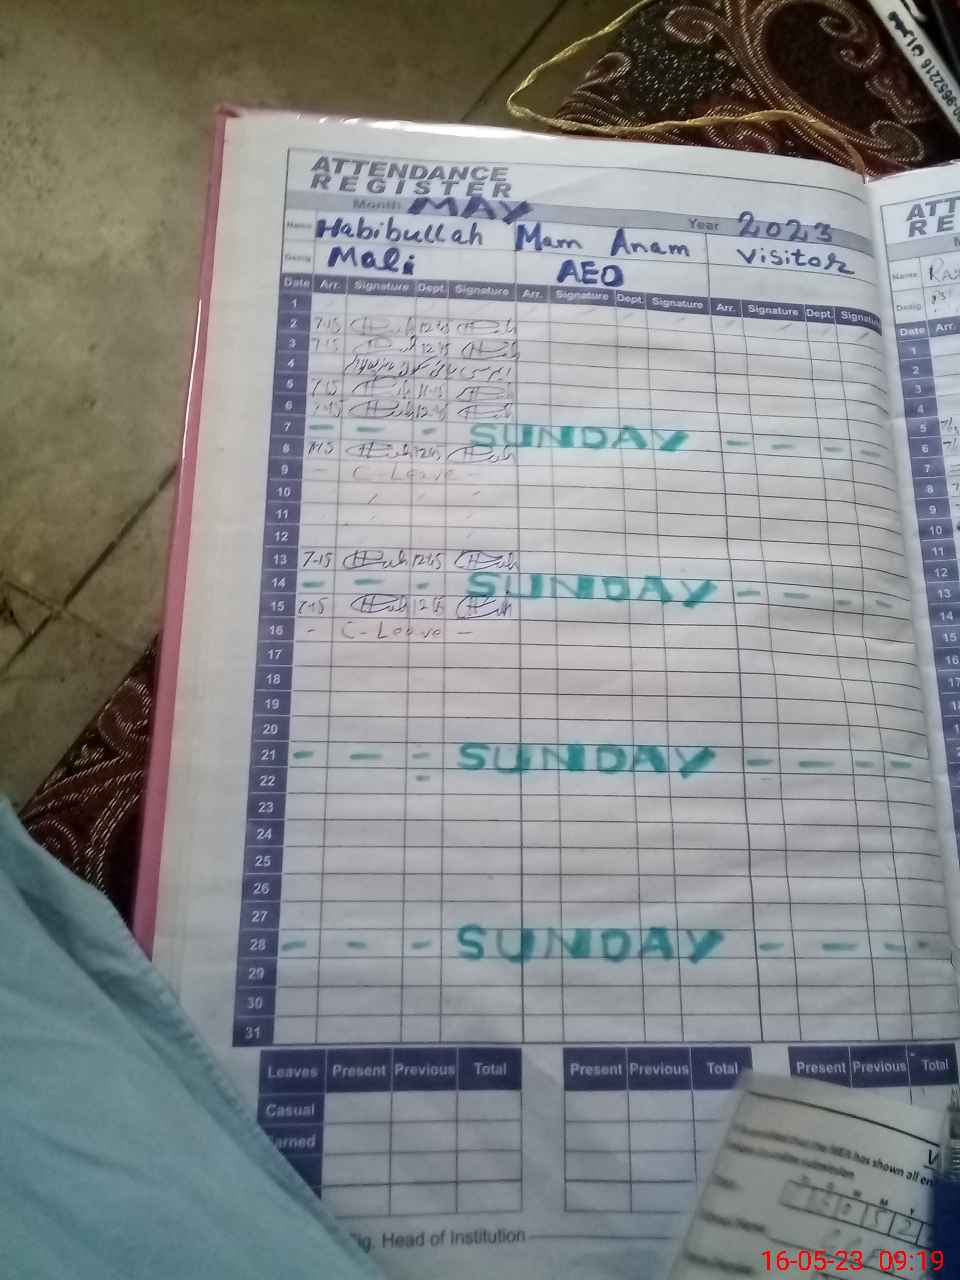 ATTENDANCE
REGISTER
Month MAY Year 2023
Name Habibullah Mam Anam Visitor
Desig Mali AEO
Date Arr. Signature Dept. Signature Arr. Signature Dept. Signature Arr. Signature Dept. Signature
1
2 7-15 12-45
3 7-15 12-45
4
5 7-15 11-15
6 7-15 12-45
7 - - - SUNDAY - - - -
8 7-15 12-45
9 - C-Leave -
10
11
12
13 7-15 12-45
14 - - - SUNDAY - - - -
15 7-15 12-45
16 - C-Leave -
17
18
19
20
21 - - - SUNDAY - - - -
22
23
24
25
26
27
28 - - - SUNDAY - - - -
29
30
31
Leaves Present Previous Total Present Previous Total Present Previous Total
Casual
Sig. Head of Institution
ATT
RE
Name
Desig
Date Arr.
1
2
3
4
5
6
7
8
9
10
11
12
13
14
15
16
has shown all
16-05-23 09:19